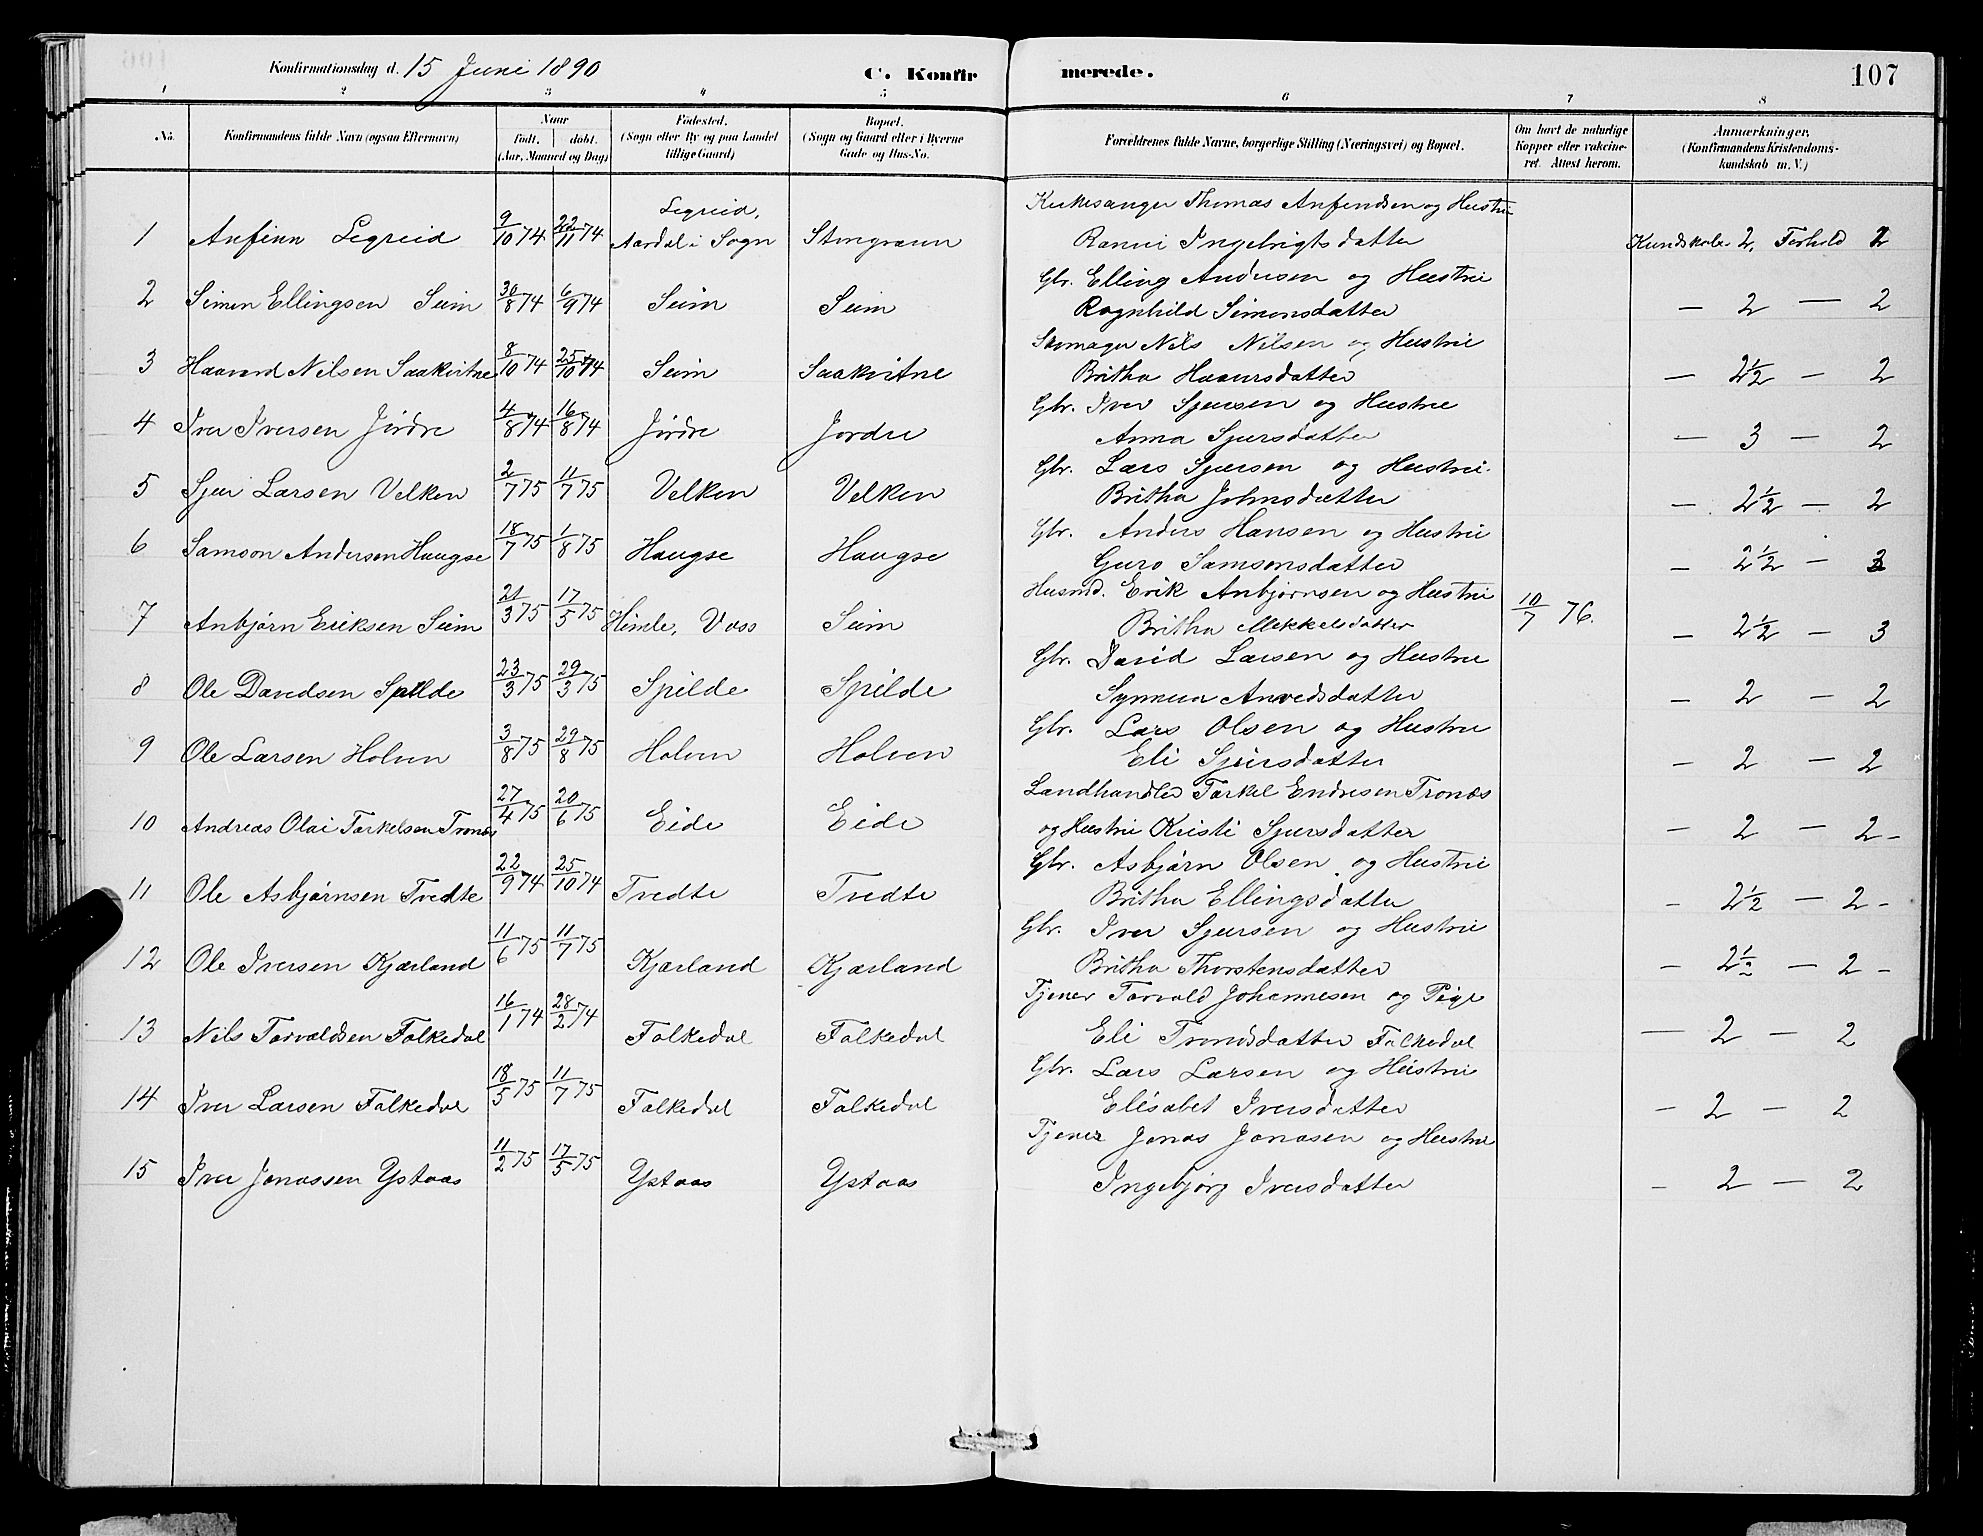 Konfirmationsdag d. 15 Juni 1890 C. Konfir merede. 107
1 2 3 4 5 6 7 8
No. Konfirmandens fulde Navn (ogsaa Efternavn) Naar født. døbt. (Aar, Maaned og Dag) Fødested. (Sogn eller By og paa Landet tillige Gaard) Bopæl. (Sogn og Gaard eller i Byerne Gade og Hus-No. Forældrenes fulde Navne, borgerlige Stilling (Næringsvei) og Bopæl. Om havt de naturlige Kopper eller vakcineret. Attest herom. Anmærkninger. (Konfirmandens Kristendomskundskab m. V.)
Legreid, Kirkesanger Thomas Anfendsen og Hustru
1 Anfinn Legreid 9/10 74 22/11 74 Aardal i Sogn Ranvei Ingebrigtsdatter Kundskab 2, Forhold 2
Gbr. Elling Andersen og Hustru
2 Simon Ellingsen Seim 30/8 74 6/9 74 Seim Seim Ragnhild Simonsdatter — 2 — 2
Nils Nilsen og Hustru
3 Haavard Nilsen Saakvitne 8/10 74 25/10 74 Seim Saakvitne Britha Haaversdatter — 2 1/2 — 2
Gbr. Iver Sjursen og Hustru
4 Iver Iversen Jørdre 4/8 74 16/8 74 Jørdre Jordre Anna Sjursdatter — 3 — 2
Gbr. Lars Sjursen og Hustru
5 Sjur Larsen Velken 2/7 75 11/7 75 Velken Velken Britha Johnsdatter — 2 1/2 — 2
Gbr. Anders Hansen og Hustru
6 Samson Andersen Haugse 18/7 75 1/8 75 Haugse Haugse Guro Samsonsdatter — 2 1/2 — 3
Husmd. Erik Anbjørnsen og Hustru
7 Anbjørn Eriksen Seim 21/3 75 17/5 75 Himle, Voss Seim Britha Mikkelsdatter 10/7 76. — 2 1/2 — 3
Gbr. David Larsen og Hustru
8 Ole Davidsen Spilde 23/3 75 29/3 75 Spilde Spilde Synneva Arvedsdatter — 2 — 2
Gbr. Lars Olsen og Hustru
9 Ole Larsen Holven 3/8 75 29/8 75 Holven Holven Eli Sjursdatter — 2 — 2
Landhandler Tarkel Endresen Tronæs
10 Andreas Olai Tarkelsen Tronæs 27/4 75 20/6 75 Eide Eide og Hustru Kristi Sjursdatter — 2 — 2 -
Gbr. Asbjørn Olsen og Hustru
11 Ole Asbjørnsen Tvedte 22/9 74 25/10 74 Tvedte Tvedte Britha Ellingsdatter — 2 1/2 — 2 -
Gbr. Iver Sjursen og Hustru
12 Ole Iversen Kjærland 11/6 75 11/7 75 Kjærland Kjærland Britha Thorstensdatter — 2 1/2 — 2 -
Tjener Torvald Johannesen og Pige
13 Nils Torvaldsen Folkedal 16/1 74 28/2 74 Folkedal Folkedal Eli Trondsdatter Folkedal — 2 — 2
Gbr. Lars Larsen og Hustru
14 Iver Larsen Folkedal 18/5 75 11/7 75 Folkedal Folkedal Elisabet Iversdatter — 2 — 2
Tjener Jonas Jonasen og Hustru
15 Iver Jonassen Ystaas 11/2 75 17/5 75 Ystaas Ystaas Ingebjørg Iversdatter — 2 — 2